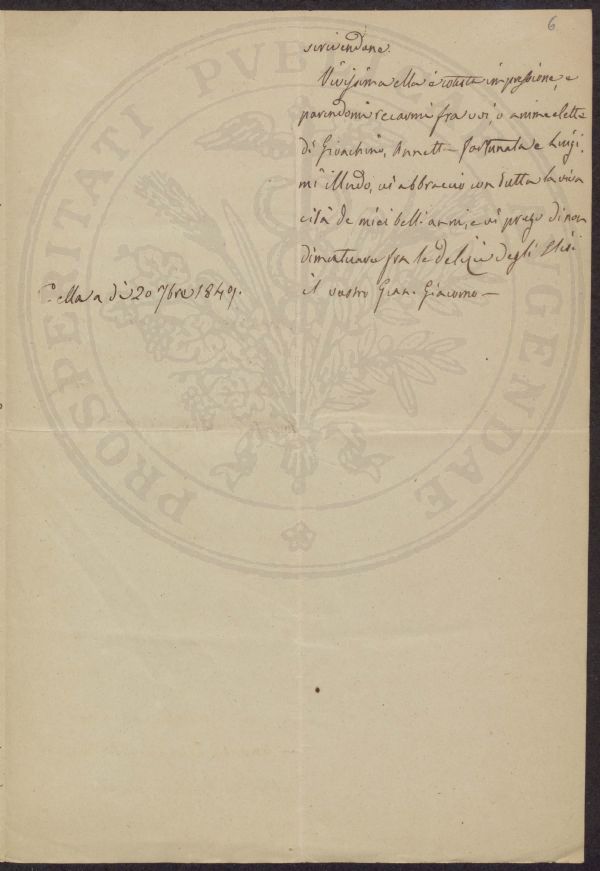 6
scrivendone.
Vivissima ella è cotesta impressione, e
parendomi recarmi fra voi, o anime elette
di Gioachino, Annetta Fortunata e Luigi.
mi illudo, vi abbraccio con tutta la viva
cità de miei belli anni, e vi prego di non
dimenticare fra le delizie degli Elisi
il vostro Gian. Giacomo —
ella a dì 20 7bre 1849.
PROSPERITATI PVB AUGENDAE